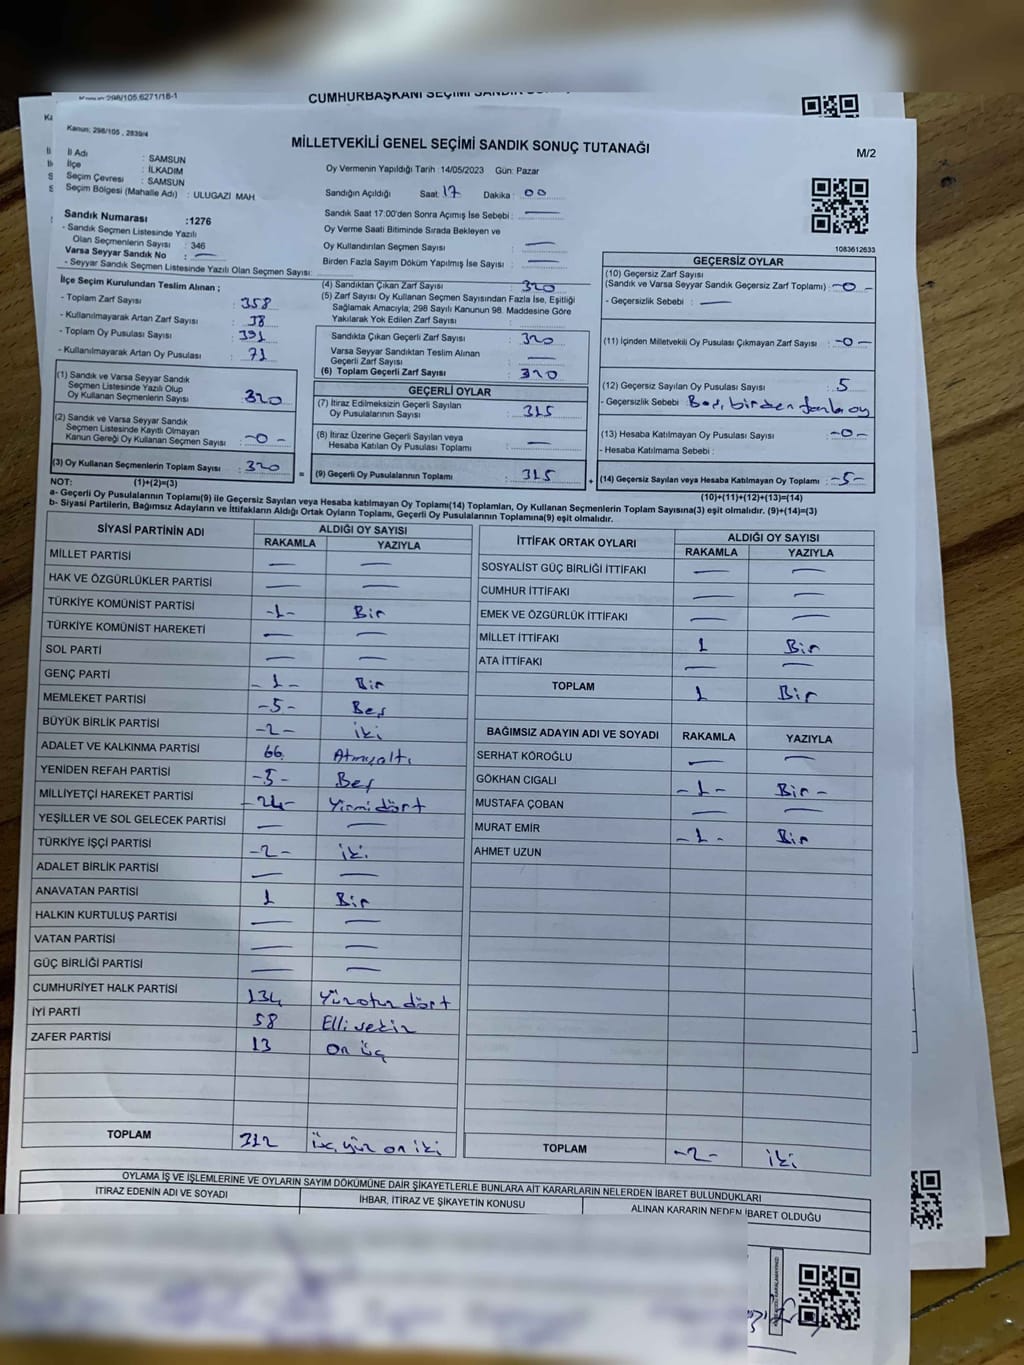 Kanun: 298/105.6271/18-1
CUMHURBAŞKANI SEÇİMİ
Kanun: 298/105 , 2839/4
MİLLETVEKİLİ GENEL SEÇİMİ SANDIK SONUÇ TUTANAĞI
M/2
İl Adı : SAMSUN
İlçe : İLKADIM
Seçim Çevresi : SAMSUN
Seçim Bölgesi (Mahalle Adı) : ULUGAZI MAH
Oy Vermenin Yapıldığı Tarih :14/05/2023 Gün: Pazar
Sandığın Açıldığı Saat: 17 Dakika : 00
Sandık Saat 17:00'den Sonra Açımış İse Sebebi : —
Oy Verme Saati Bitiminde Sırada Bekleyen ve
Oy Kullandırılan Seçmen Sayısı : —
Birden Fazla Sayım Döküm Yapılmış İse Sayısı : —
Sandık Numarası :1276
- Sandık Seçmen Listesinde Yazılı
Olan Seçmenlerin Sayısı : 346
Varsa Seyyar Sandık No : —
- Seyyar Sandık Seçmen Listesinde Yazılı Olan Seçmen Sayısı:
1083612633
İlçe Seçim Kurulundan Teslim Alınan ;
- Toplam Zarf Sayısı : 358
- Kullanılmayarak Artan Zarf Sayısı : 38
- Toplam Oy Pusulası Sayısı : 391
- Kullanılmayarak Artan Oy Pusulası : 71
(1) Sandık ve Varsa Seyyar Sandık
Seçmen Listesinde Yazılı Olup
Oy Kullanan Seçmenlerin Sayısı : 320
(2) Sandık ve Varsa Seyyar Sandık
Seçmen Listesinde Kayıtlı Olmayan
Kanun Gereği Oy Kullanan Seçmen Sayısı : -0-
(3) Oy Kullanan Seçmenlerin Toplam Sayısı : 320
(4) Sandıktan Çıkan Zarf Sayısı : 320
(5) Zarf Sayısı Oy Kullanan Seçmen Sayısından Fazla İse, Eşitliği
Sağlamak Amacıyla; 298 Sayılı Kanunun 98. Maddesine Göre
Yakılarak Yok Edilen Zarf Sayısı :
Sandıkta Çıkan Geçerli Zarf Sayısı : 320
Varsa Seyyar Sandıktan Teslim Alınan
Geçerli Zarf Sayısı : —
(6) Toplam Geçerli Zarf Sayısı : 320
GEÇERLİ OYLAR
(7) İtiraz Edilmeksizin Geçerli Sayılan
Oy Pusulalarının Sayısı : 315
(8) İtiraz Üzerine Geçerli Sayılan veya
Hesaba Katılan Oy Pusulası Toplamı : —
= (9) Geçerli Oy Pusulalarının Toplamı : 315
GEÇERSİZ OYLAR
(10) Geçersiz Zarf Sayısı
(Sandık ve Varsa Seyyar Sandık Geçersiz Zarf Toplamı) : -0-
- Geçersizlik Sebebi : —
(11) İçinden Milletvekili Oy Pusulası Çıkmayan Zarf Sayısı : -0-
(12) Geçersiz Sayılan Oy Pusulası Sayısı : 5
- Geçersizlik Sebebi : Boş, birden fazla oy
(13) Hesaba Katılmayan Oy Pusulası Sayısı : -0-
- Hesaba Katılmama Sebebi :
+ (14) Geçersiz Sayılan veya Hesaba Katılmayan Oy Toplamı : -5-
NOT: (1)+(2)=(3)
(10)+(11)+(12)+(13)=(14)
a- Geçerli Oy Pusulalarının Toplamı(9) ile Geçersiz Sayılan veya Hesaba katılmayan Oy Toplamı(14) Toplamları, Oy Kullanan Seçmenlerin Toplam Sayısına(3) eşit olmalıdır. (9)+(14)=(3)
b- Siyasi Partilerin, Bağımsız Adayların ve İttifakların Aldığı Ortak Oyların Toplamı, Geçerli Oy Pusulalarının Toplamına(9) eşit olmalıdır.
SİYASİ PARTİNİN ADI ALDIĞI OY SAYISI
RAKAMLA YAZIYLA
MİLLET PARTİSİ — —
HAK VE ÖZGÜRLÜKLER PARTİSİ — —
TÜRKİYE KOMÜNİST PARTİSİ -1- Bir
TÜRKİYE KOMÜNİST HAREKETİ — —
SOL PARTİ — —
GENÇ PARTİ -1- Bir
MEMLEKET PARTİSİ -5- Beş
BÜYÜK BİRLİK PARTİSİ -2- iki
ADALET VE KALKINMA PARTİSİ 66 Atmışaltı
YENİDEN REFAH PARTİSİ -5- Beş
MİLLİYETÇİ HAREKET PARTİSİ -24- Yirmi dört
YEŞİLLER VE SOL GELECEK PARTİSİ — —
TÜRKİYE İŞÇİ PARTİSİ -2- iki
ADALET BİRLİK PARTİSİ — —
ANAVATAN PARTİSİ 1 Bir
HALKIN KURTULUŞ PARTİSİ — —
VATAN PARTİSİ — —
GÜÇ BİRLİĞİ PARTİSİ — —
CUMHURİYET HALK PARTİSİ 134 Yüzotuz dört
İYİ PARTİ 58 Elli sekiz
ZAFER PARTİSİ 13 on üç
TOPLAM 312 üç yüz on iki
İTTİFAK ORTAK OYLARI ALDIĞI OY SAYISI
RAKAMLA YAZIYLA
SOSYALİST GÜÇ BİRLİĞİ İTTİFAKI — —
CUMHUR İTTİFAKI — —
EMEK VE ÖZGÜRLÜK İTTİFAKI — —
MİLLET İTTİFAKI 1 Bir
ATA İTTİFAKI — —
TOPLAM 1 Bir
BAĞIMSIZ ADAYIN ADI VE SOYADI RAKAMLA YAZIYLA
SERHAT KÖROĞLU — —
GÖKHAN CIGALI -1- Bir -
MUSTAFA ÇOBAN — —
MURAT EMİR -1- Bir
AHMET UZUN
TOPLAM -2- iki
OYLAMA İŞ VE İŞLEMLERİNE VE OYLARIN SAYIM DÖKÜMÜNE DAİR ŞİKAYETLERLE BUNLARA AİT KARARLARIN NELERDEN İBARET BULUNDUKLARI
İTİRAZ EDENİN ADI VE SOYADI İHBAR, İTİRAZ VE ŞİKAYETİN KONUSU ALINAN KARARIN NEDEN İBARET OLDUĞU